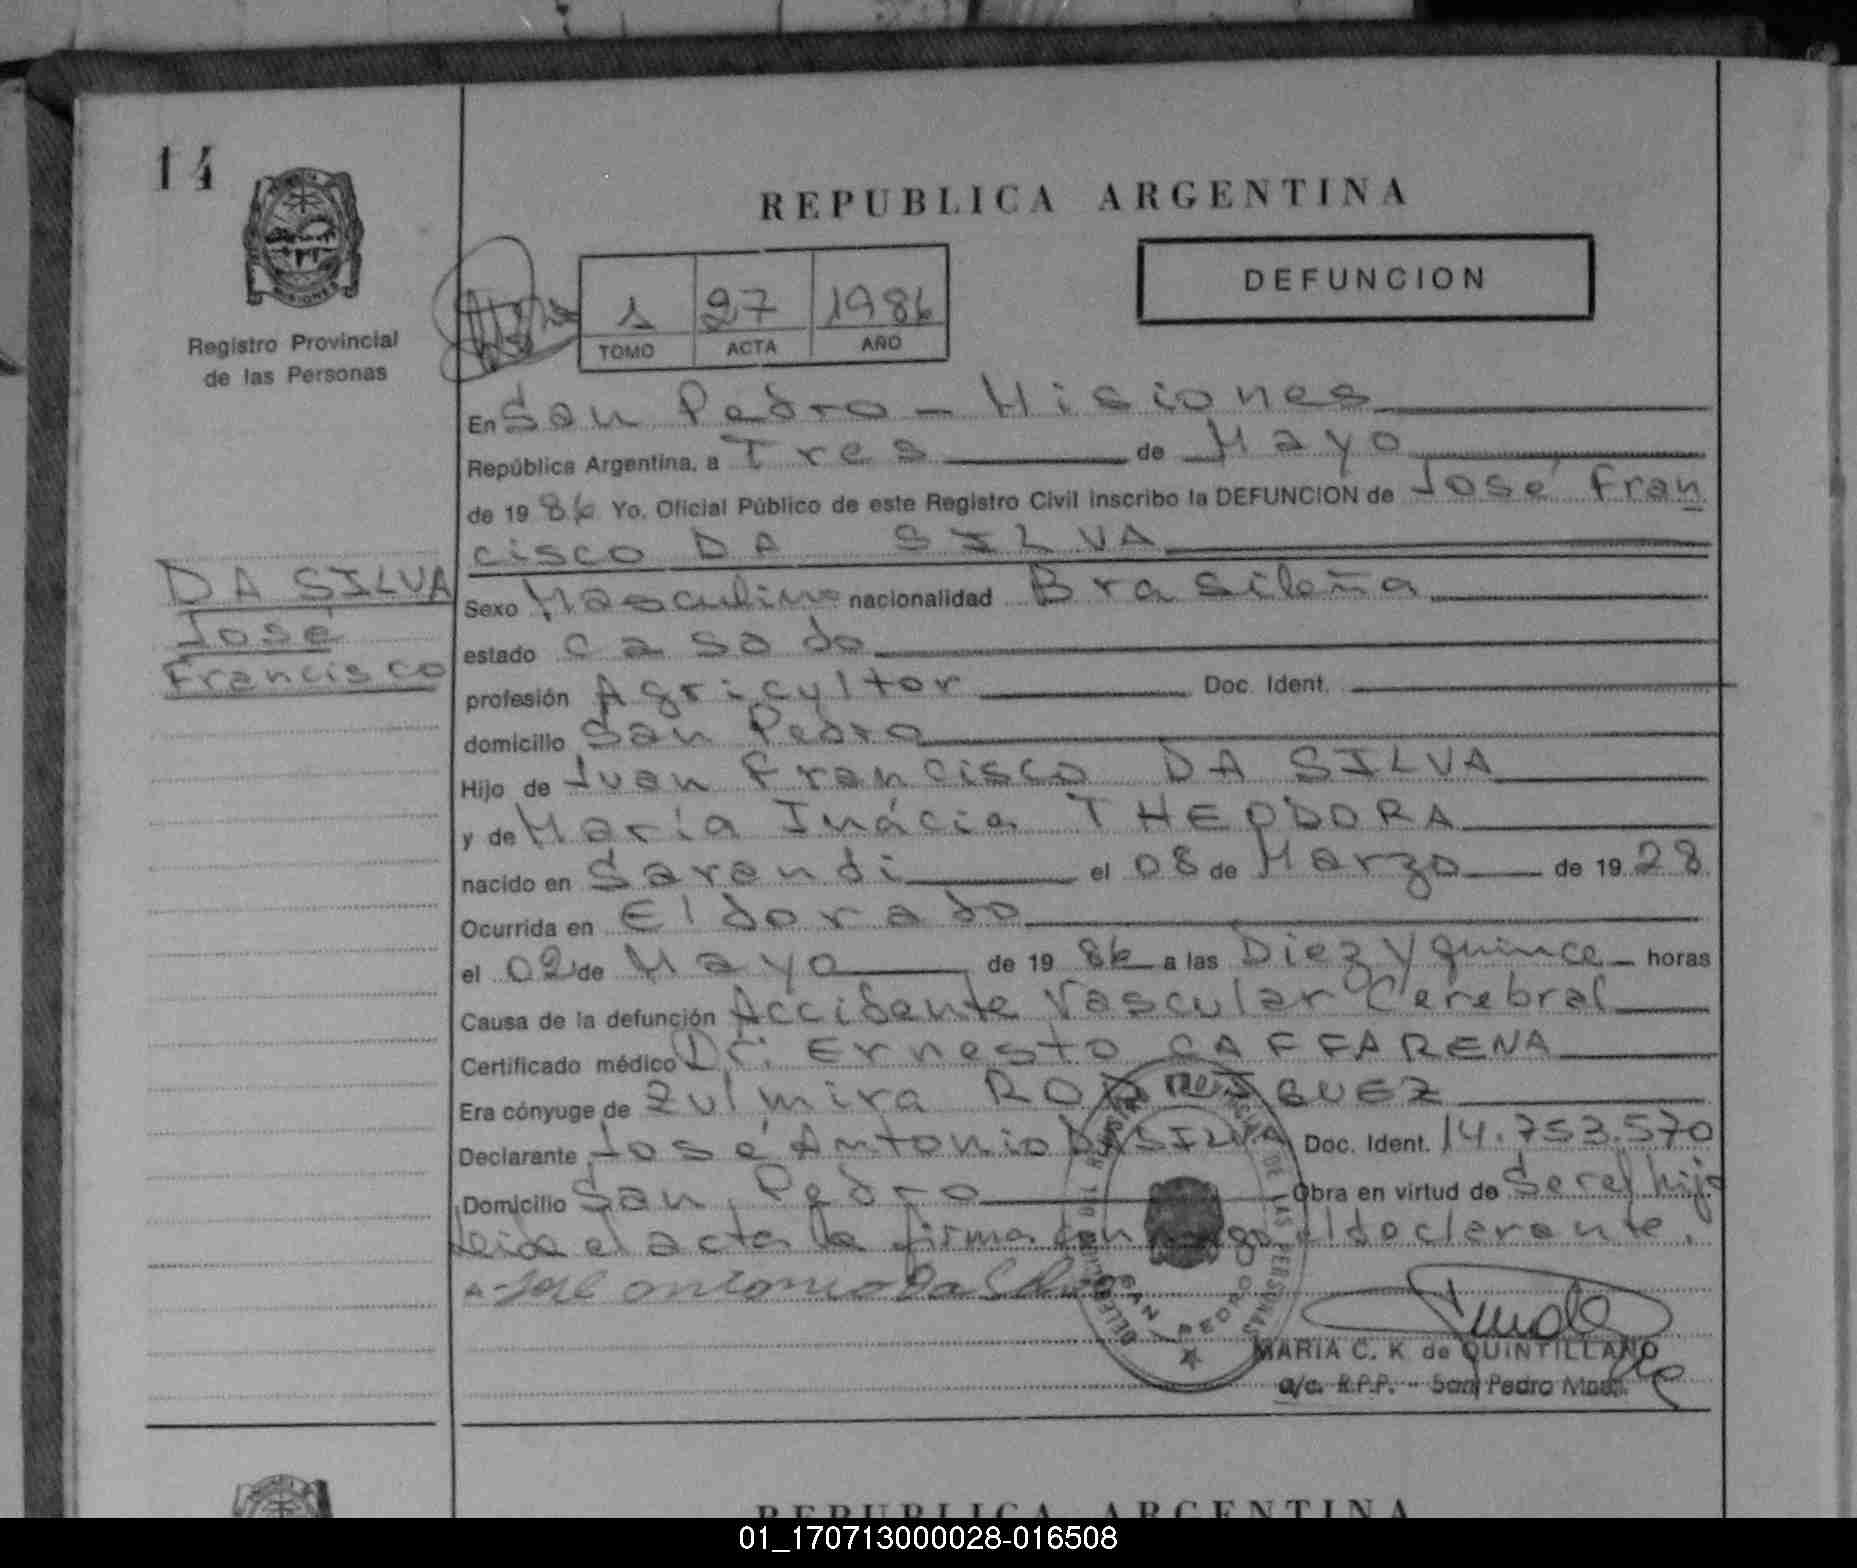 14
REPUBLICA ARGENTINA
DEFUNCION
1 27 1986
TOMO ACTA AÑO
MISIONES
Registro Provincial
de las Personas
En San Pedro - Misiones
República Argentina, a Tres de Mayo
de 19 86 Yo, Oficial Público de este Registro Civil inscribo la DEFUNCION de José Fran
cisco DA SILVA
DA SILVA
José
Francisco
Sexo Masculino nacionalidad Brasileña
estado casado
profesión Agricultor Doc. Ident.
domicilio San Pedro
Hijo de Juan Francisco DA SILVA
y de María Inácia THEODORA
nacido en Sarandi el 08 de Marzo de 19 28
Ocurrida en Eldorado
el 02 de Mayo de 19 86 a las Diez y quince horas
Causa de la defunción Accidente Vascular Cerebral
Certificado médico Dr. Ernesto CAFFARENA
Era cónyuge de Zulmira RODRIGUEZ
Declarante José Antonio DA SILVA Doc. Ident. 14.753.570
Domicilio San Pedro Obra en virtud de Ser el hijo
Leida el acta la firma el declarante.
José Antonio Da Silva
SAN PEDRO
MARIA C. K. de QUINTILLANO
a/c. R.P.P. - San Pedro Mnes.
REPUBLICA ARGENTINA
01_170713000028-016508